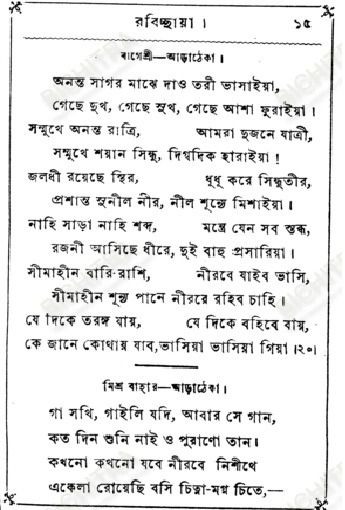 রবিচ্ছায়া । ১৫
বাগেশ্রী—আড়াঠেকা ।
অনন্ত সাগর মাঝে দাও তরী ভাসাইয়া,
গেছে দুখ, গেছে সুখ, গেছে আশা ফুরাইয়া ।
সম্মুখে অনন্ত রাত্রি, আমরা দুজনে যাত্রী,
সম্মুখে শয়ান সিন্ধু, দিগ্বিদিক হারাইয়া !
জলধী রয়েছে স্থির, ধূধূ করে সিন্ধুতীর,
প্রশান্ত সুনীল নীর, নীল শূন্যে মিশাইয়া ।
নাহি সাড়া নাহি শব্দ, মন্ত্রে যেন সব স্তব্ধ,
রজনী আসিছে ধীরে, দুই বাহু প্রসারিয়া ।
সীমাহীন বারি-রাশি, নীরবে যাইব ভাসি,
সীমাহীন শূন্য পানে নীরবে রহিব চাহি ।
যে দিকে তরঙ্গ যায়, যে দিকে বহিবে বায়,
কে জানে কোথায় যাব, ভাসিয়া ভাসিয়া গিয়া ।২০।
মিশ্র বাহার—আড়াঠেকা ।
গা সখি, গাইলি যদি, আবার সে গান,
কত দিন শুনি নাই ও পুরাণো তান ।
কখনো কখনো যবে নীরবে নিশীথে
একেলা রোয়েছি বসি চিন্তা-মগ্ন চিতে,—